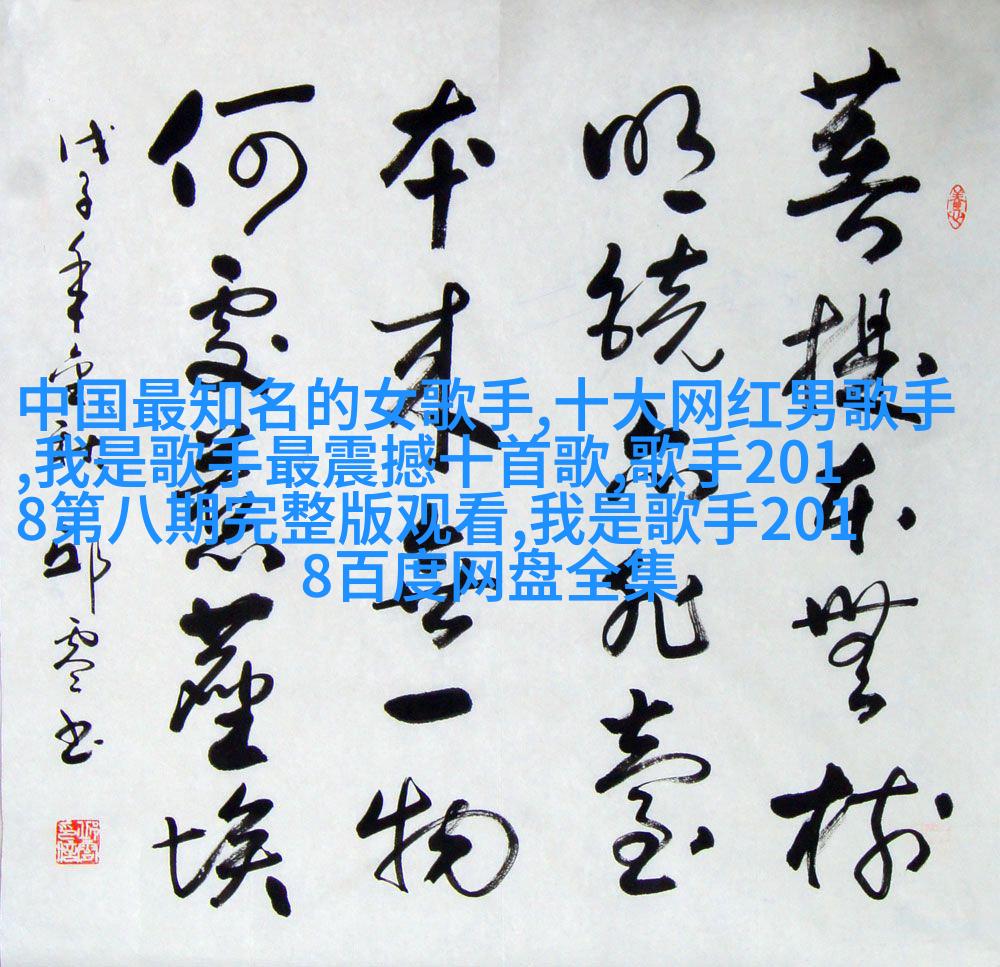 菩提本無樹
明鏡亦非臺
本來無一物
何處惹塵埃
戊子年金秋邱书
中国最知名的女歌手,十大网红男歌手
,我是歌手最震撼十首歌,歌手201
8第八期完整版观看,我是歌手201
8百度网盘全集